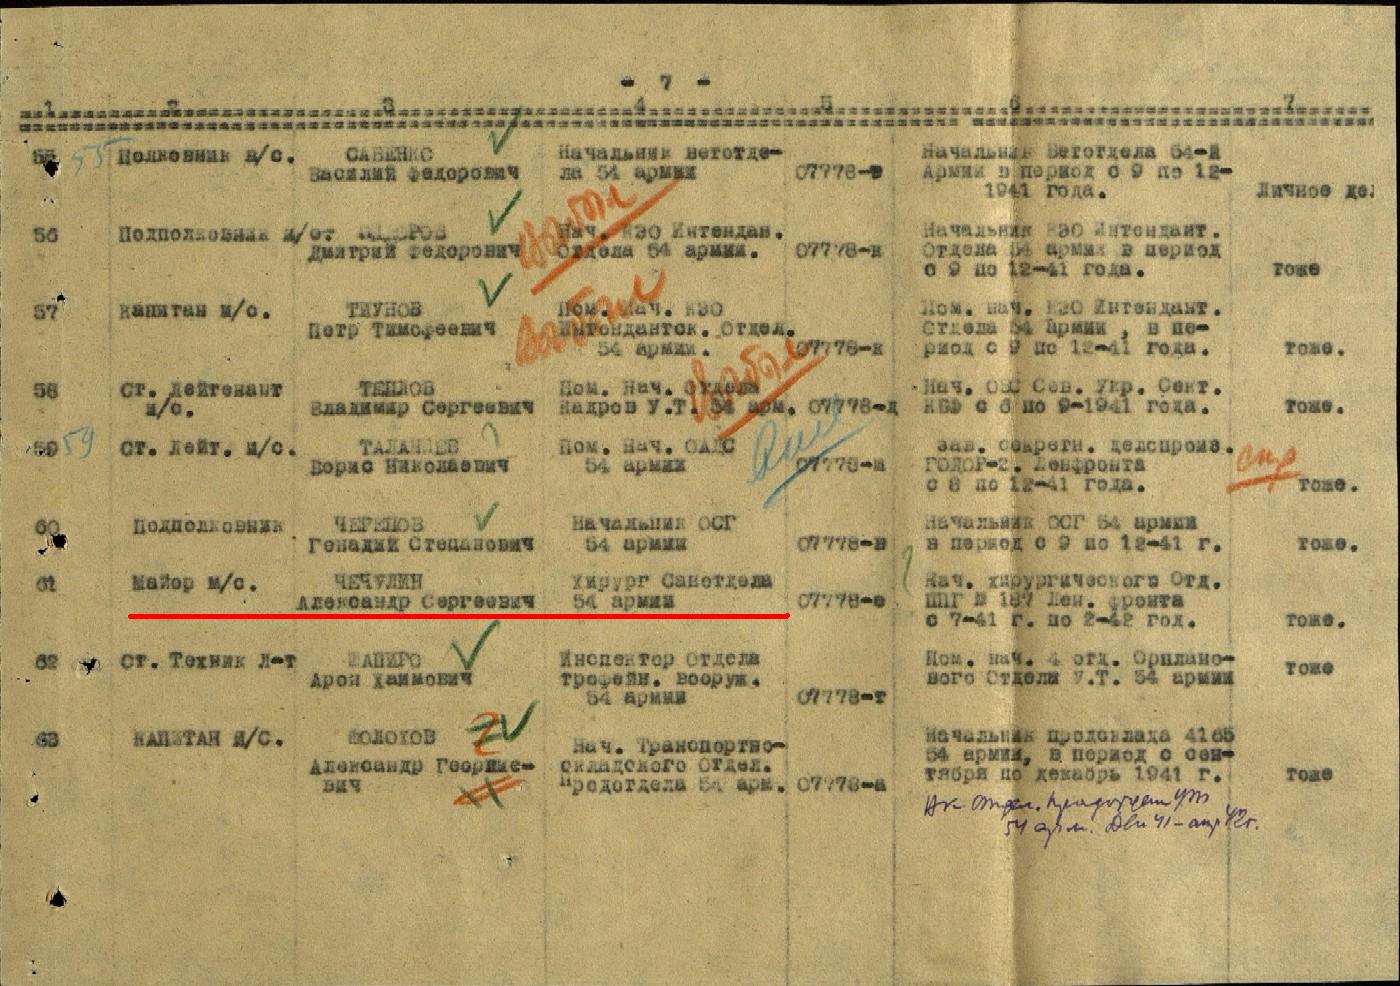 - 7 -
1 2 3 4 5 6 7
55 55 Полковник в/с. САВЕНКО Начальник ветотде- Начальник Ветотдела 54-й
Василий Федорович ла 54 армии 07778-в Армии в период с 9 по 12-
1941 года. Личное дел
56 Подполковник и/с Нач. КЭО Интендан. Начальник КЭО Интендант.
Дмитрий Федорович Отдела 54 армии. 07778-и Отдела 54 армии в период
с 9 по 12-41 года. тоже
57 Капитан и/с. ТИУНОВ Пом. Нач. КЭО Пом. нач. КЭО Интендант.
Петр Тимофеевич Интендантск. Отдел. Отдела 54 Армии, в пе-
54 армии. 07778-к риод с 9 по 12-41 года. тоже.
58 Ст. Лейтенант ТЕПЛОВ Пом. Нач. Отдела Нач. ОВС Сев. Укр. Сект.
и/с. Владимир Сергеевич Кадров У.Т. 54 арм. 07778-д КБФ с 6 по 9-1941 года. тоже.
59 59 Ст. Лейт. и/с. ТАЛАНЦЕВ ? Пом. Нач. ОАДС зав. секретн. делопроиз.
Борис Николаевич 54 армии 07778-и ГОДОР-2. Ленфронта
с 8 по 12-41 года. тоже.
60 Подполковник ЧЕРЕПОВ Начальник ОСГ Начальник ОСГ 54 армии
Генадий Степанович 54 армии 07778-н в период с 9 по 12-41 г. тоже.
61 Майор м/с. ЧЕЧУЛИН Хирург Санотдела ? Нач. хирургического Отд.
Александр Сергеевич 54 армии 07778-о ППГ № 187 Лен. фронта
с 7-41 г. по 2-42 год. тоже.
62 Ст. Техник Л-т ШАПИРО Инспектор Отдела Пом. нач. 4 отд. Оргпано-
Арон Хаимович трофейн. вооруж. вого Отдела У.Т. 54 армии тоже
54 армии 07778-т
63 КАПИТАН и/С. ШОЛОХОВ Нач. Транспортно- Начальник продсклада 4165
Александр Георгие- складского Отдел. 54 армии, в период с сен-
вич Продотдела 54 арм. 07778-а тября по декабрь 1941 г. тоже
54 арм.